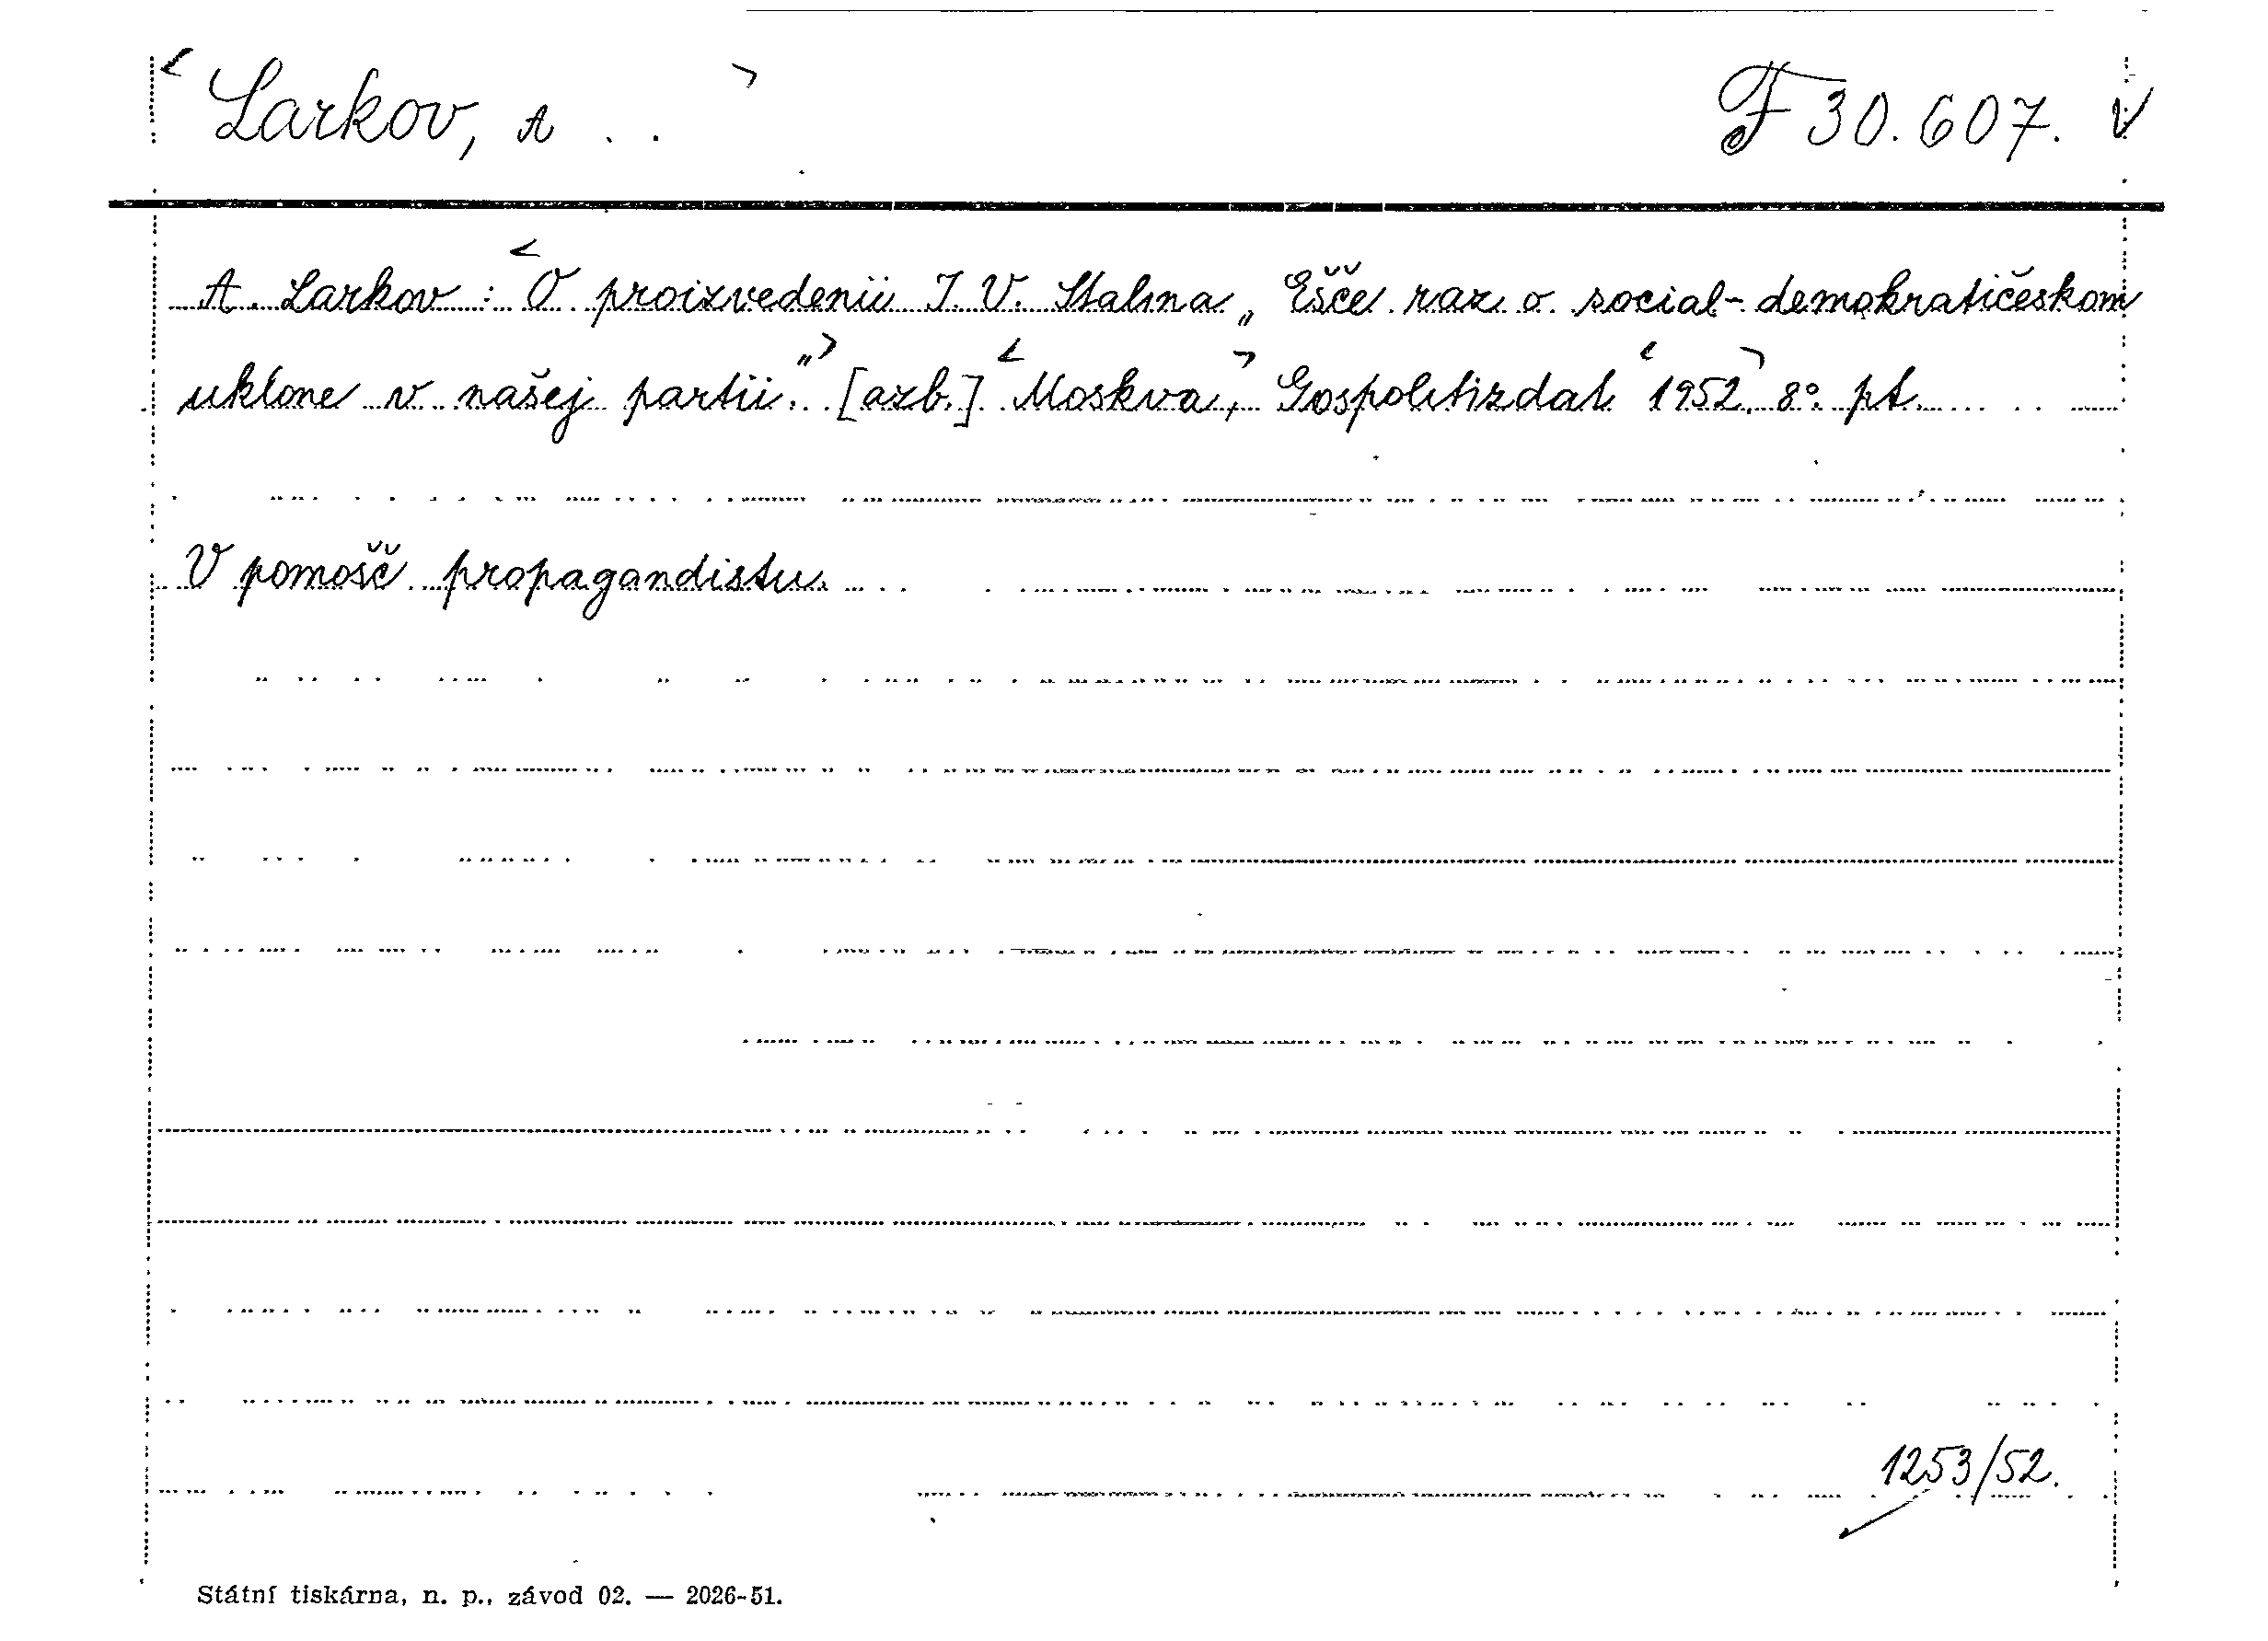 Larkov, A . . F 30.607. V
A. Larkov : O proizvedenii I. V. Stalina „Ešče raz o social-demokratičeskom
uklone v našej partii." [azb.] Moskva, Gospolitizdat 1952. 8°. pt.
V pomošč propagandistu.
1253/52.
Státní tiskárna, n. p., závod 02. — 2026-51.